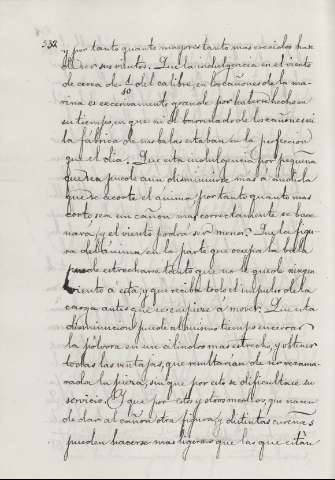 332
y por tanto quanto mayores tanto mas crecidos han
de ser sus vientos. Que la indulgencia en el viento
de cerca de 1/30 del calibre en los cañones de la ma-
rina es excesivamente grande por haberse hecho en
su tiempo, en que ni el barrenado de los cañones ni
la fábrica de sus balas estaban en la perfeccion
que el dia. Que esta indulgencia por pequeña
que sea puede aun disminuirse mas á medida
que se acorte el ánima por tanto quanto mas
corto sea un cañon mas correctamente se barre-
nará y el viento podra ser menor. Que la figu-
ra del ánima en la parte que ocupa la bala
puede estrecharse tanto que no le quede ningun
viento á esta, y que reciba todo el impulso de la
carga antes que empieze á mover. Que esta
disminucion puede al mismo tiempo encerrar
la pólvora en un cilindro mas estrecho, y obtener
todas las ventajas, que resultarian de ser recama-
rada la pieza, sin que por esto se dificultase su
servicio. Y que por esto y otros medios, que nacen
de dar al cañon otra figura y distintas cureñas
pueden hacerse mas ligeros que los que están